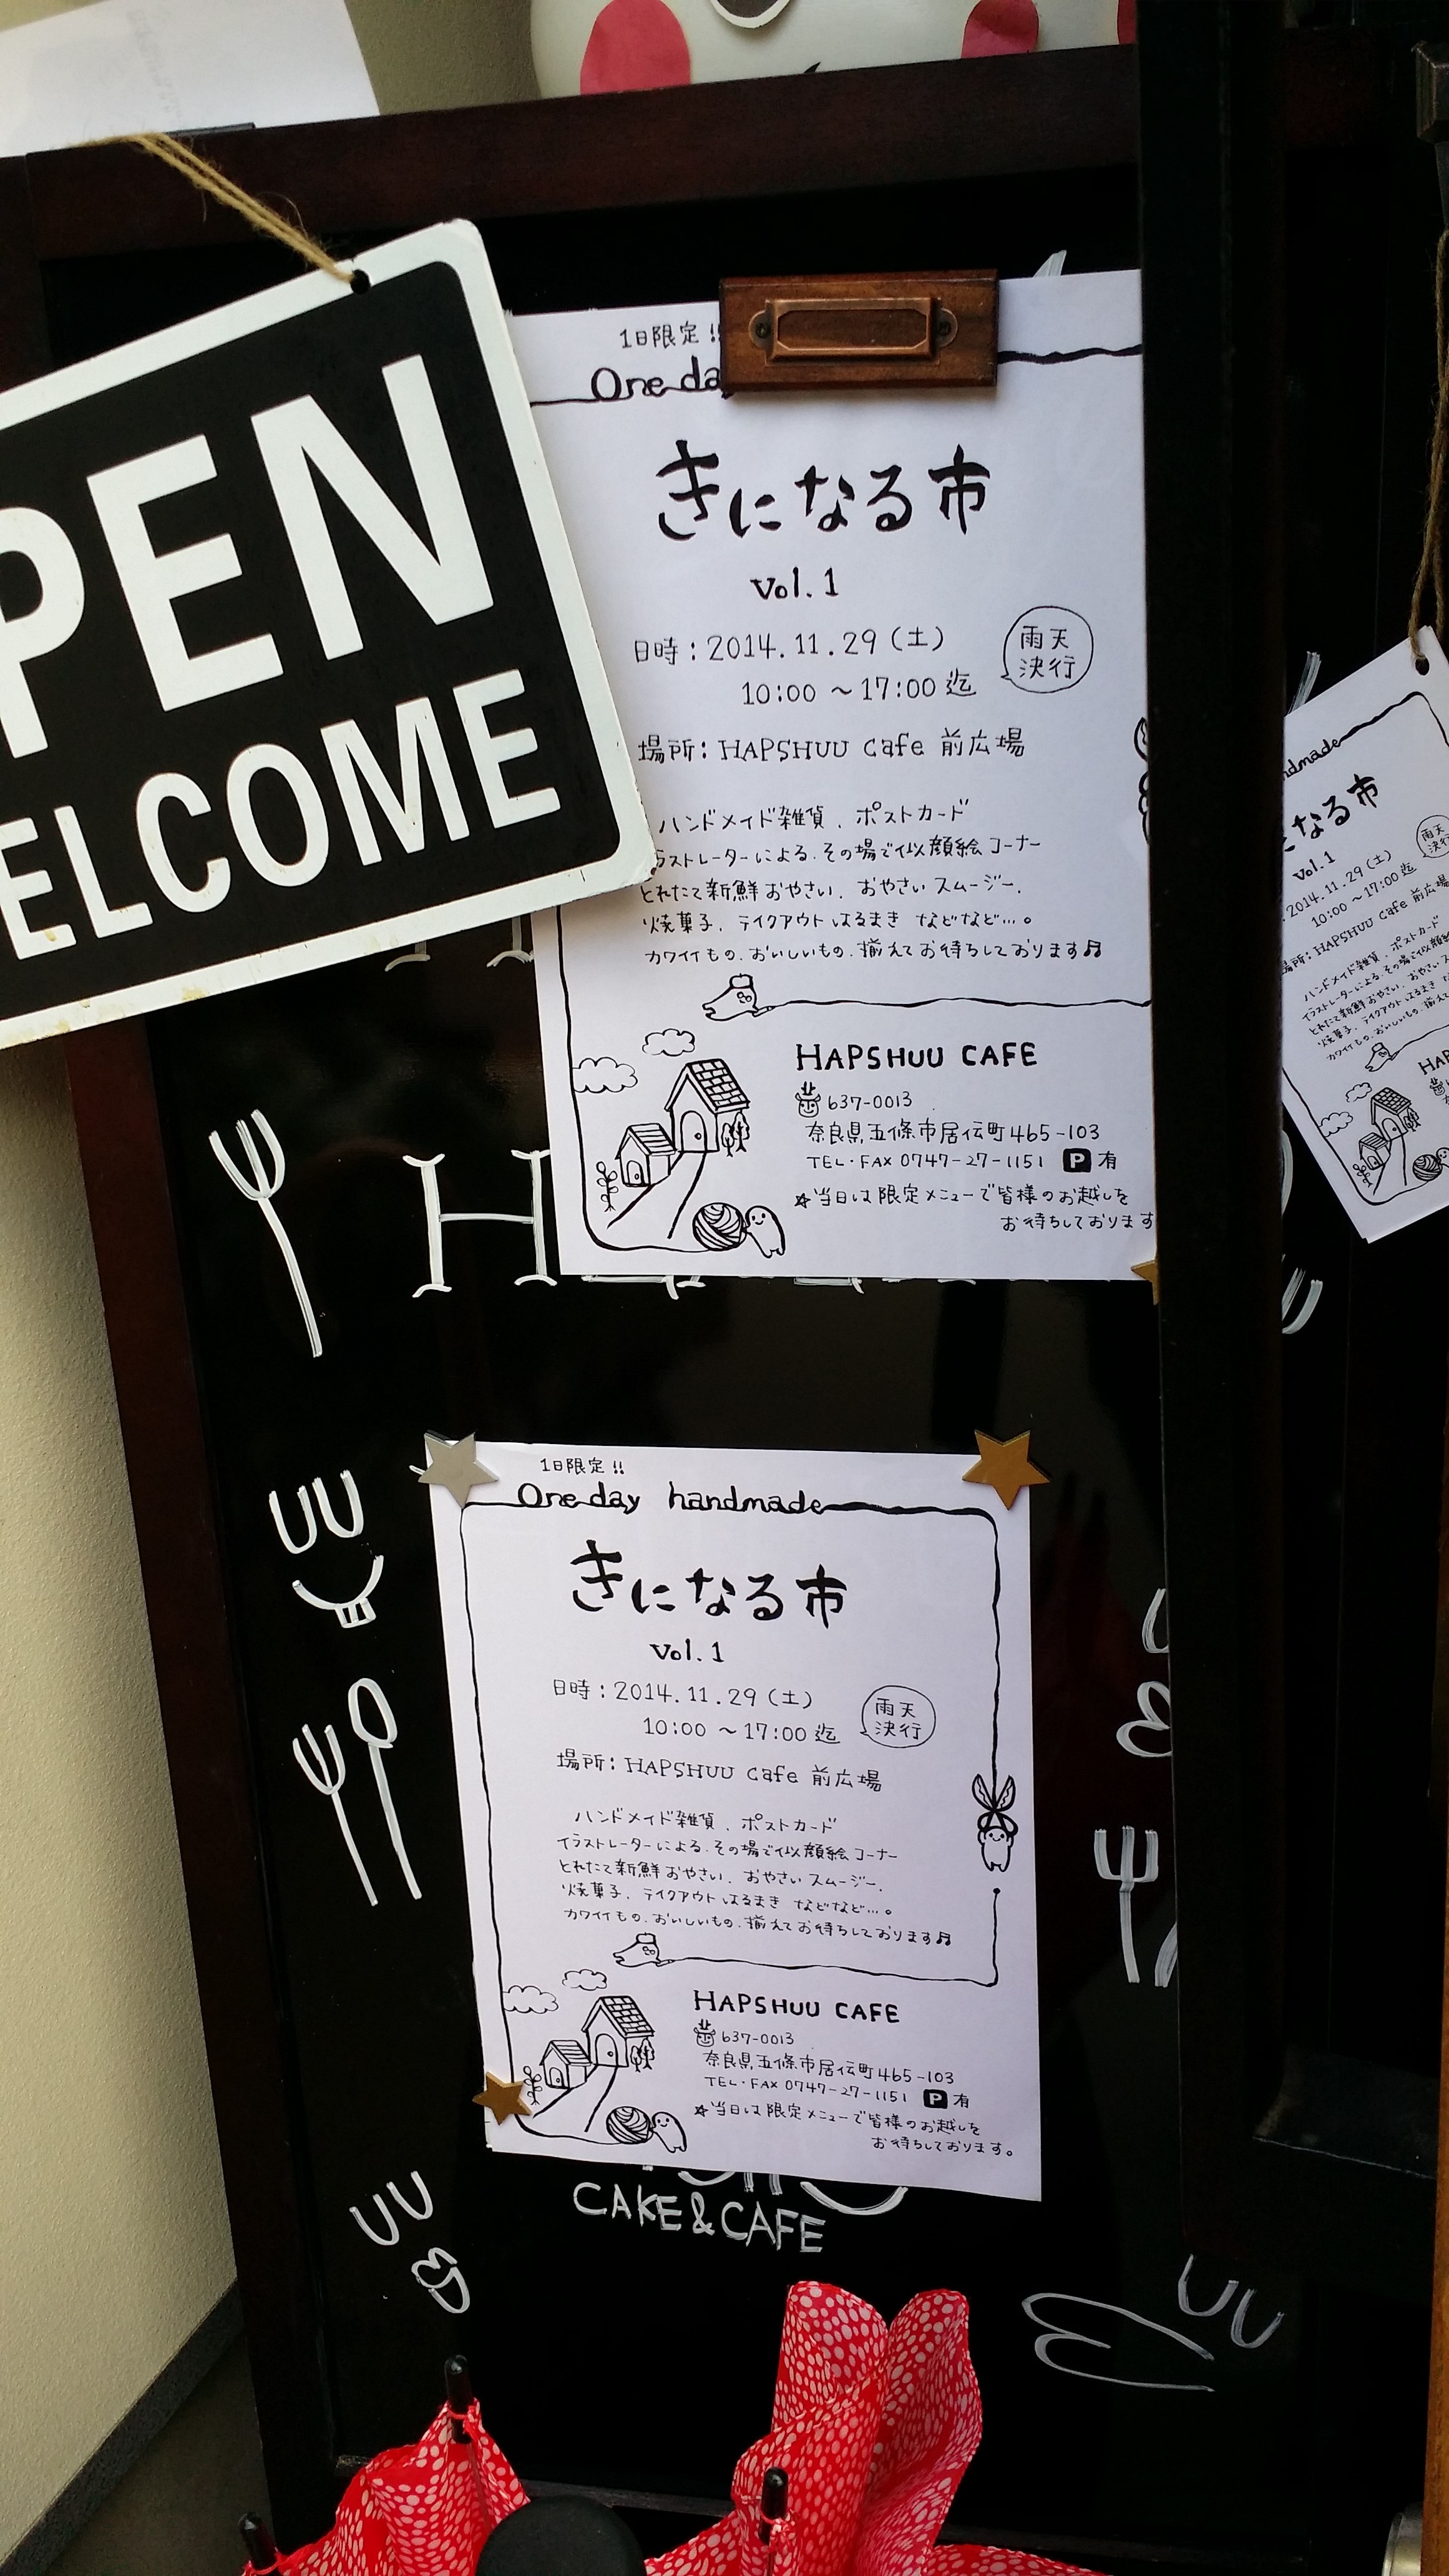 PEN
ELCOME
1日限定!!
One da
きになる市
vol.1
日時:2014.11.29(土)
雨天
決行
10:00~17:00迄
場所:HAPSHUU Cafe 前広場
ハンドメイド雑貨、ポストカード
ラストレーターによる、その場で似顔絵コーナー
とれたて新鮮おやさい、おやさいスムージー、
焼菓子、テイクアウトはるまき などなど…。
カワイイもの、おいしいもの、揃えてお待ちしております♬
HAPSHUU CAFE
637-0013
奈良県五條市居伝町465-103
TEL・FAX 0747-27-1151 P有
☆当日は限定メニューで皆様のお越しを
お待ちしております
H
1日限定!!
One day handmade
きになる市
vol.1
日時:2014.11.29(土)
雨天
決行
10:00~17:00迄
場所:HAPSHUU Cafe 前広場
ハンドメイド雑貨、ポストカード
イラストレーターによる、その場で似顔絵コーナー
とれたて新鮮おやさい、おやさいスムージー、
焼菓子、テイクアウトはるまき などなど…。
カワイイもの、おいしいもの、揃えてお待ちしております♬
HAPSHUU CAFE
637-0013
奈良県五條市居伝町465-103
TEL・FAX 0747-27-1151 P有
☆当日は限定メニューで皆様のお越しを
お待ちしております。
CAKE&CAFE
ndmade
なる市
vol.1
雨天
決行
2014.11.29(土)
10:00~17:00迄
場所:HAPSHUU Cafe 前広場
ハンドメイド雑貨、ポストカード
イラストレーターによる、その場で似顔絵
とれたて新鮮おやさい、おやさいス
焼菓子、テイクアウトはるまき
カワイイもの、おいしいもの、揃え
HAP